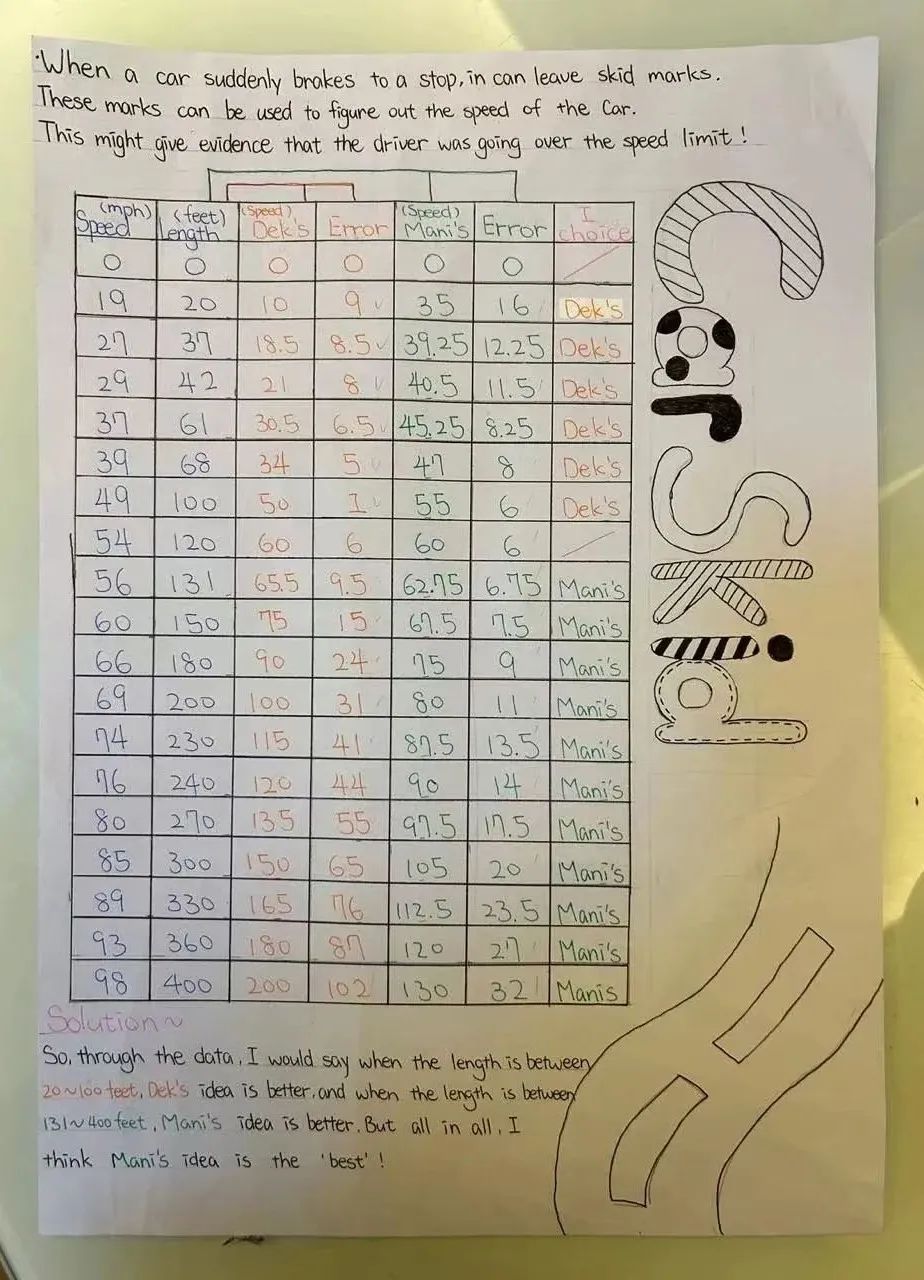 ·When a car suddenly brakes to a stop, in can leave skid marks.
These marks can be used to figure out the speed of the Car.
This might give evidence that the driver was going over the speed limit!
(mph) Speed (feet) Length (Speed) Dek's Error (Speed) Mani's Error I choice
0 0 0 0 0 0 /
19 20 10 9 35 16 Dek's
27 37 18.5 8.5 39.25 12.25 Dek's
29 42 21 8 40.5 11.5 Dek's
37 61 30.5 6.5 45.25 8.25 Dek's
39 68 34 5 47 8 Dek's
49 100 50 1 55 6 Dek's
54 120 60 6 60 6 /
56 131 65.5 9.5 62.75 6.75 Mani's
60 150 75 15 67.5 7.5 Mani's
66 180 90 24 75 9 Mani's
69 200 100 31 80 11 Mani's
74 230 115 41 87.5 13.5 Mani's
76 240 120 44 90 14 Mani's
80 270 135 55 97.5 17.5 Mani's
85 300 150 65 105 20 Mani's
89 330 165 76 112.5 23.5 Mani's
93 360 180 87 120 27 Mani's
98 400 200 102 130 32 Manis
Car Skid
Solution~
So, through the data, I would say when the length is between
20~100 feet, Dek's idea is better, and when the length is between
131~400 feet, Mani's idea is better. But all in all, I
think Mani's idea is the 'best'!